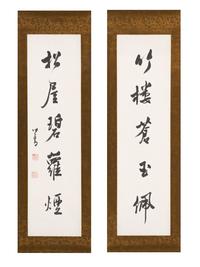 竹樓蒼玉佩
松屋碧蘿煙